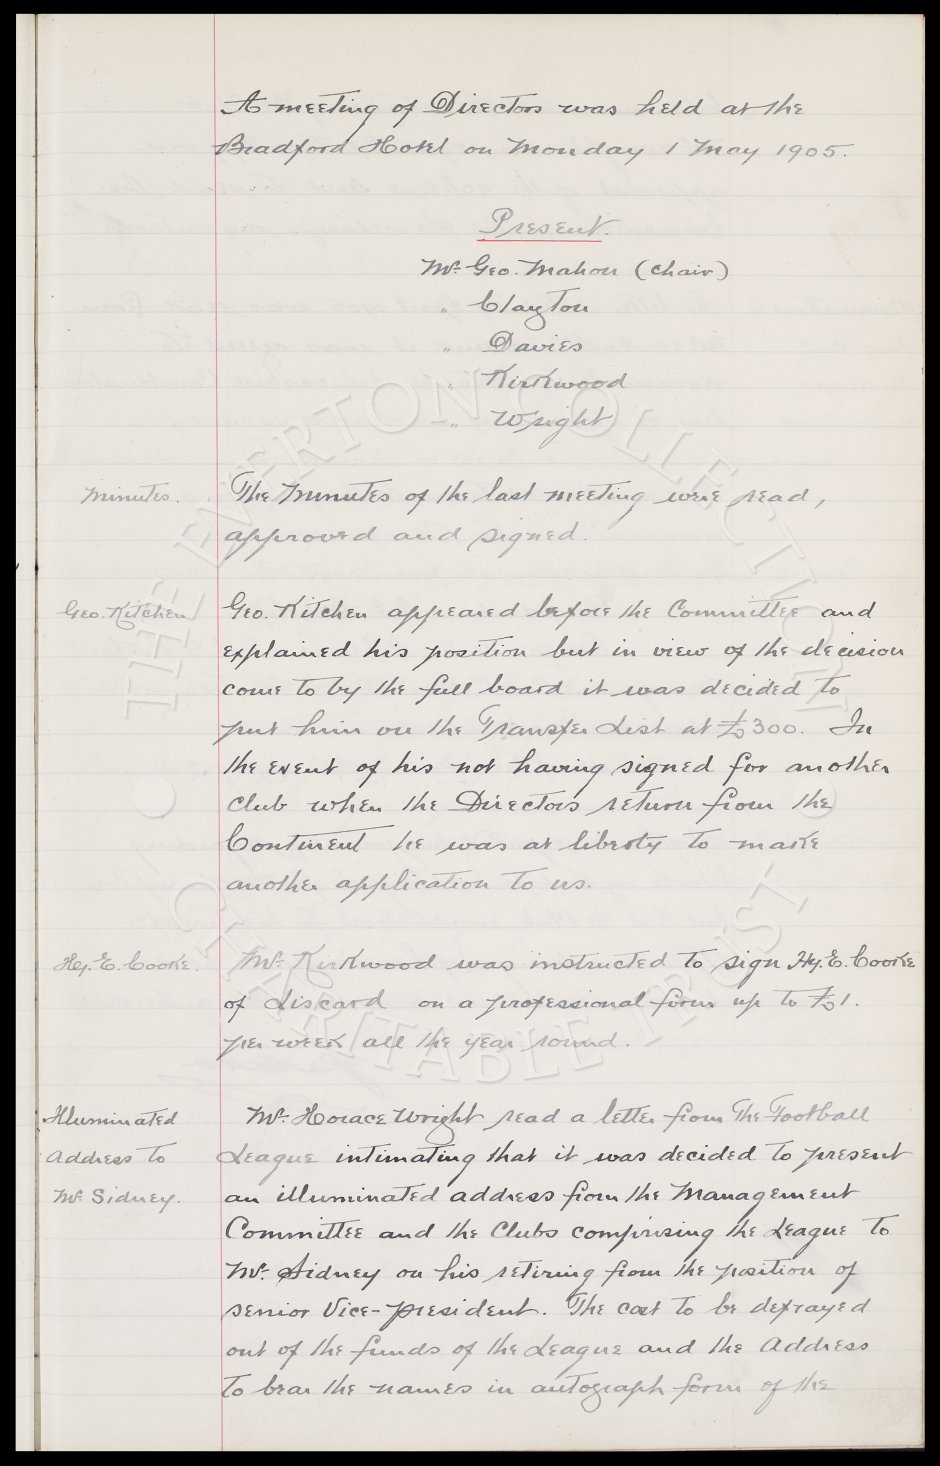 A meeting of Directors was held at the
Bradford Hotel on Monday 1 May 1905.
Present.
Mr. Geo. Mahon (Chair)
" Clayton
" Davies
" Kirkwood
" Wright
Minutes.
The Minutes of the last meeting were read,
approved and signed.
Geo. Kitchen
Geo. Kitchen appeared before the Committee and
explained his position but in view of the decision
come to by the full board it was decided to
put him on the Transfer List at £300. In
the event of his not having signed for another
Club when the Directors return from the
Continent he was at liberty to make
another application to us.
Hy. E. Cooke.
Mr. Kirkwood was instructed to sign Hy. E. Cooke
of Liscard on a professional form up to £1.
per week all the year round.
Illuminated
Address to
Mr. Sidney.
Mr. Horace Wright read a letter from The Football
League intimating that it was decided to present
an illuminated address from the Management
Committee and the Clubs comprising the League to
Mr. Sidney on his retiring from the position of
senior Vice-president. The cost to be defrayed
out of the funds of the League and the Address
to bear the names in autograph form of the
THE EVERTON COLLECTION
CHARITABLE TRUST